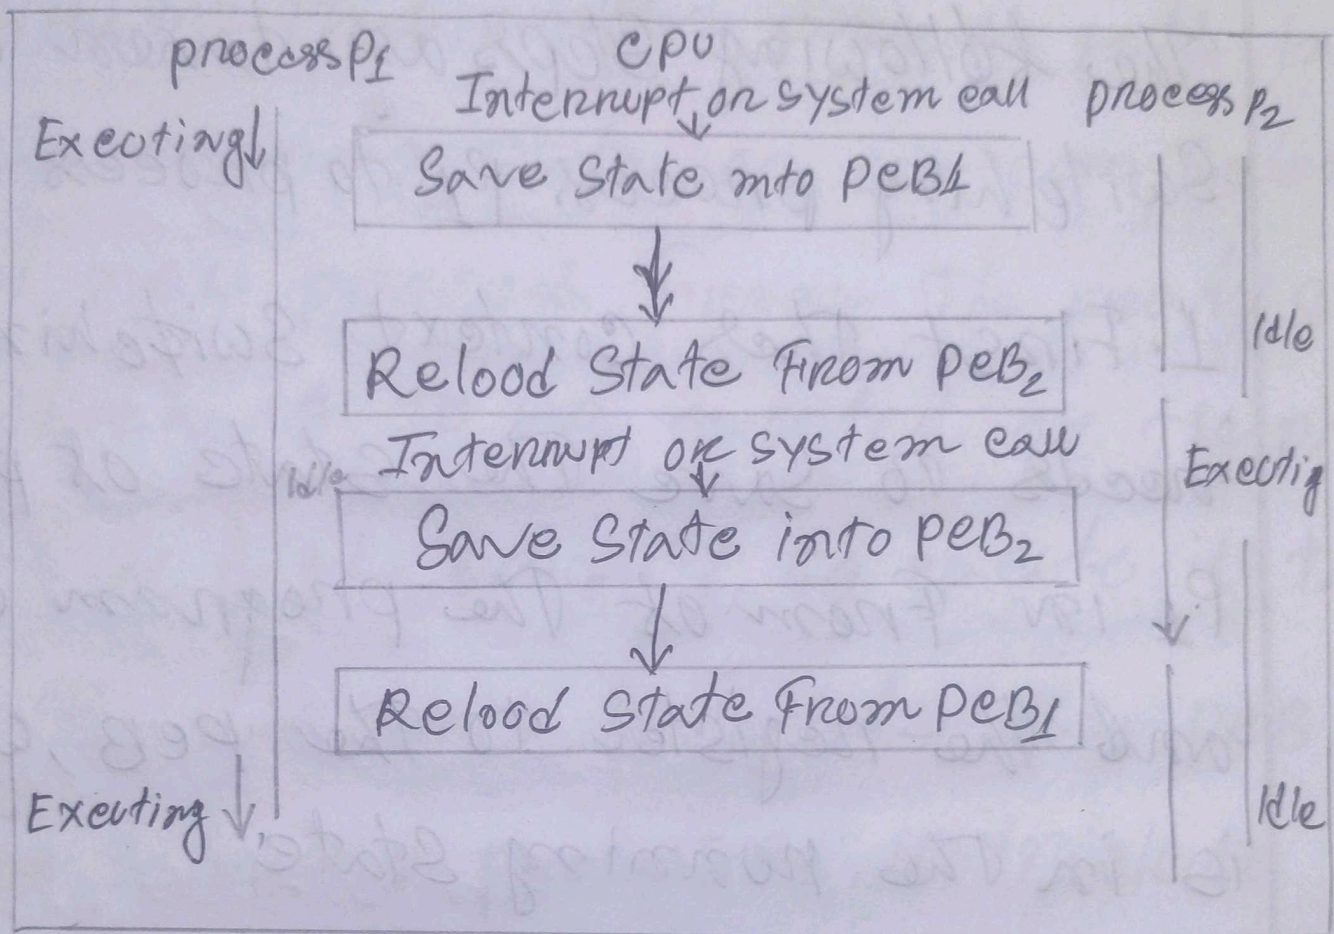 process P1
CPU
Interrupt or system call
process P2
Executing
Save State into PCB1
Idle
Reload State From PCB2
Interrupt or system call
Idle
Executig
Save State into PCB2
Reload State From PCB1
Executing
Idle